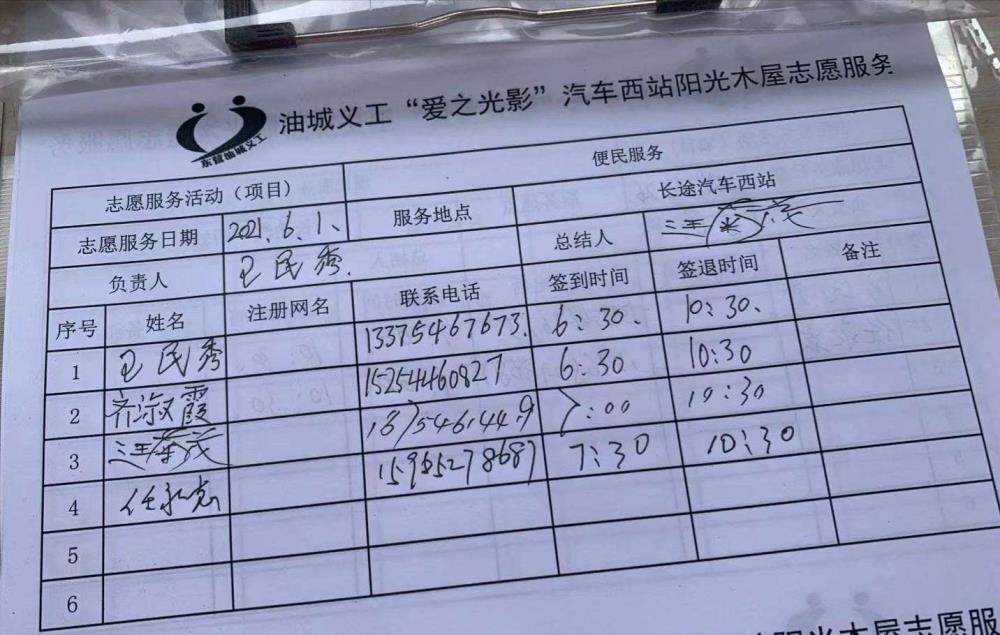 油城义工“爱之光影”汽车西站阳光木屋志愿服务
东营油城义工
志愿服务活动（项目） 便民服务
志愿服务日期 2021.6.1、 服务地点 长途汽车西站
负责人 王民秀. 总结人
序号 姓名 注册网名 联系电话 签到时间 签退时间 备注
1 王民秀 13375467673. 6：30、 10：30、
2 齐淑霞 15254460827 6:30 10:30
3 7:00 10:30
4 任永忠 15955278687 7:30 10:30
5
6
阳光木屋志愿服